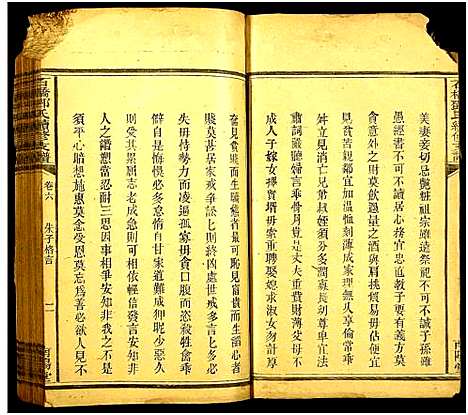 美妻妾切忌艷粧祖宗雖遠祭祀不可不誠子孫雖
愚經書不可不讀居身務期儉樸教子要有義方莫
貪意外之財莫飲過量之酒與肩挑貿易毋佔便宜
見貧苦親鄰宜加溫恤刻薄成家理無久享倫常乖
舛立見消亡兄弟叔姪須分多潤寡長幼尊卑宜家
肅詞嚴聽婦言乖骨肉豈是丈夫重貲財薄父母不
成人子嫁女擇賢壻毋索重聘娶媳求淑女勿計厚
奩見富貴而生諂容者最可恥見貧窮而生驕心者
賤莫甚居家戒爭訟訟則終凶處世戒多言言多必
失毋恃勢力而凌逼孤寡毋貪口腹而恣殺牲禽乖
僻自是悔悞必多怠惰自甘家道難成狎昵惡少久
則受其累屈志老成急則可相依輕信發言安知非
人之譖愬當忍耐三思因事相爭安知非我之不是
須平心暗想施惠莫念受恩莫忘為善必欲人見不
石橋鄧氏續修支譜
卷六
朱子格言
南陽堂
南陽堂